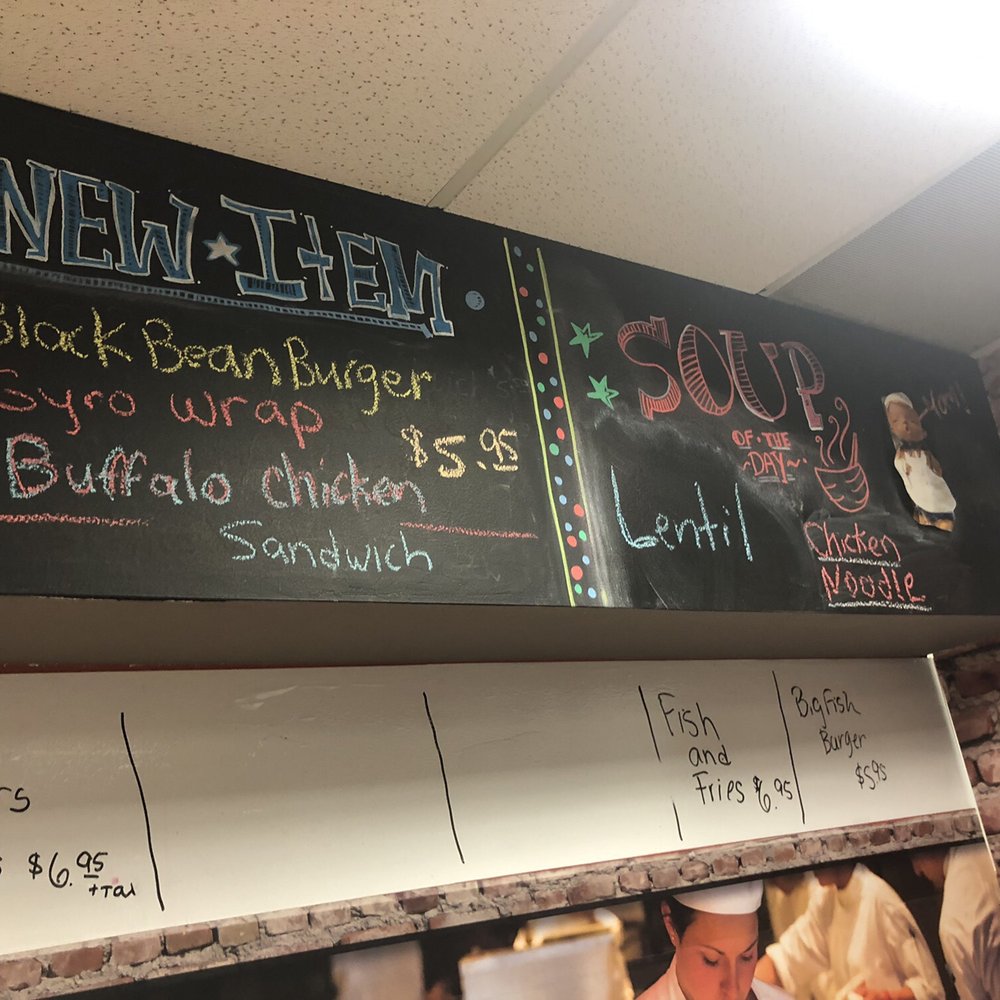 NEW ItEM
Black Bean Burger
Gyro wrap
$5.95
Buffalo chicken
Sandwich
SOUP
OF·THE
~DAY~
Lentil
Chicken
Noodle
Fish
and
Fries $6.95
BigFish
Burger
$5.95
rs
$6.95